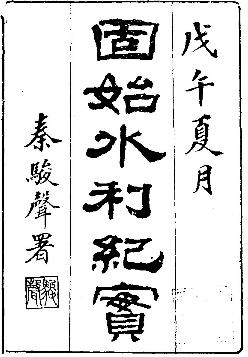 戊午夏月
固始水利紀實
秦駿聲署